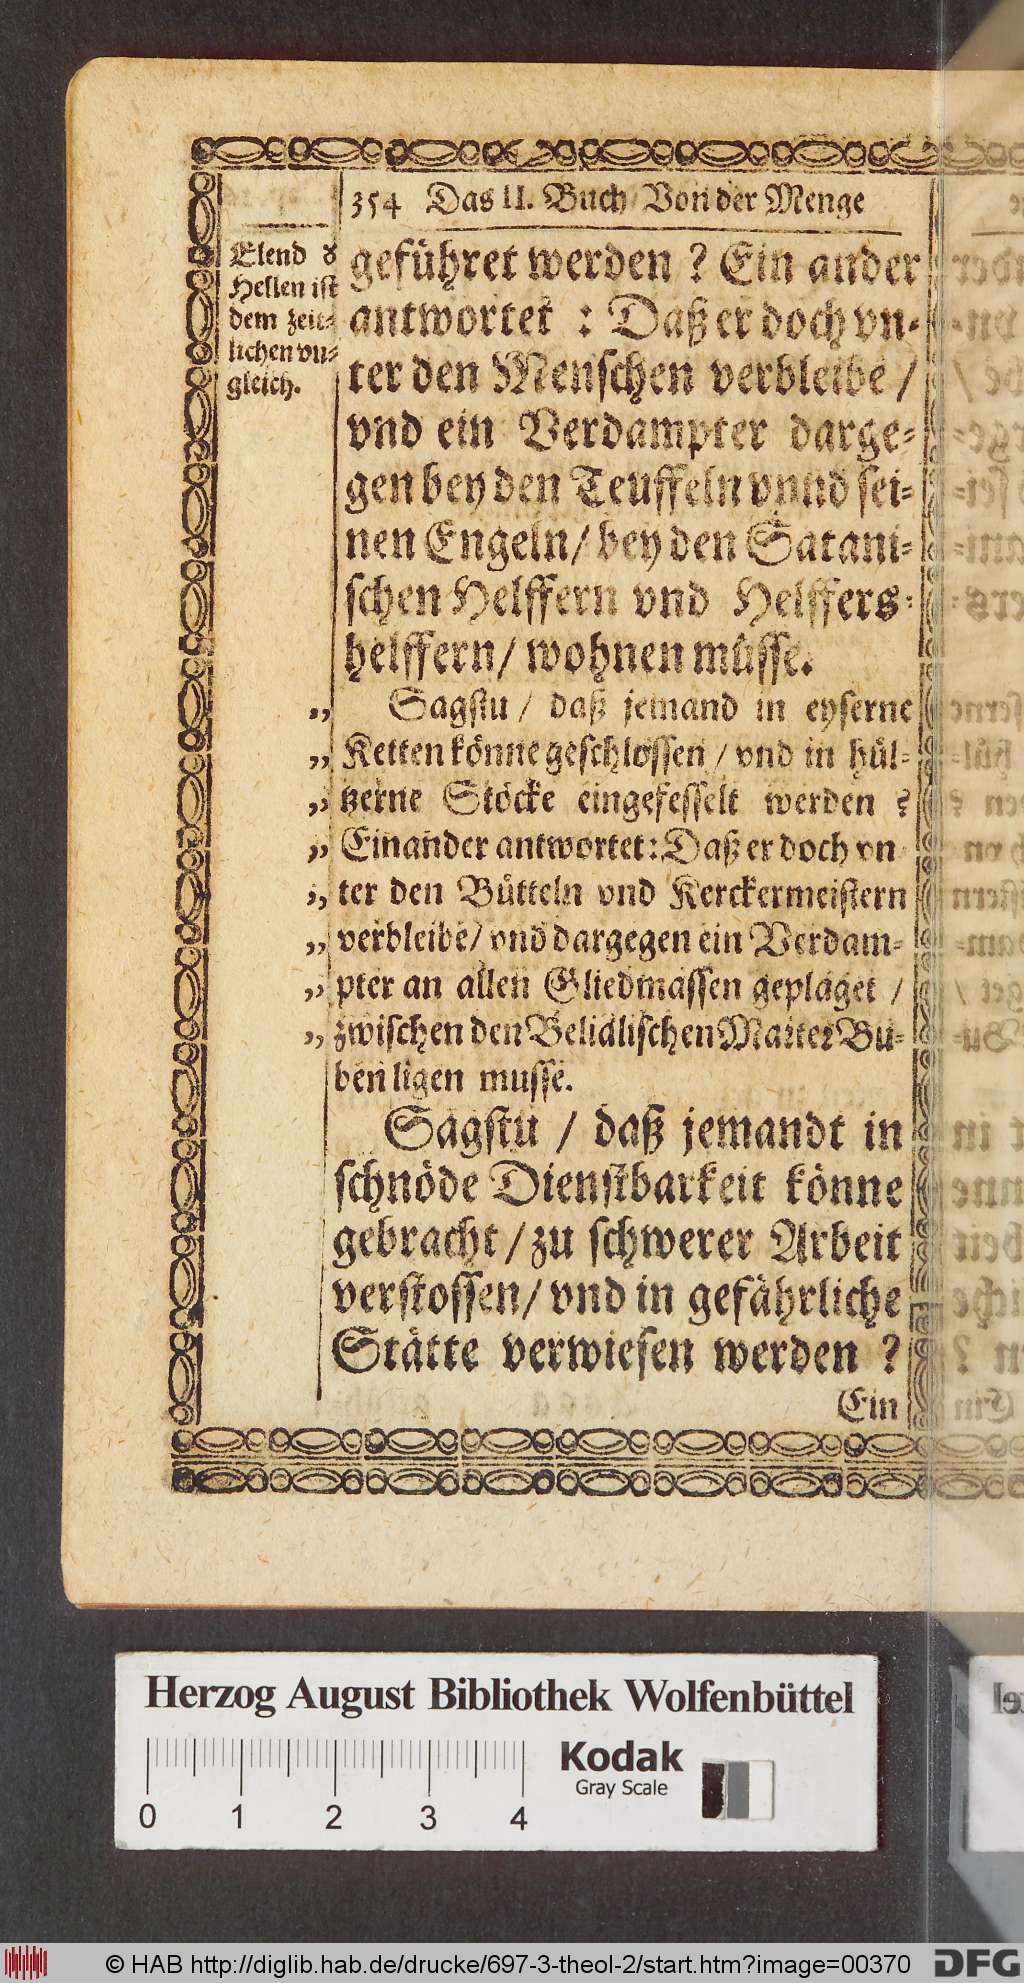 354 Das II. Buch / Von der Menge
Elend d'
Hellen ist
dem zeit-
lichen vn-
gleich.
geführet werden ? Ein ander
antwortet : Daß er doch vn-
ter den Menschen verbleibe /
vnd ein Verdampter darge-
gen bey den Teuffeln vnnd sei-
nen Engeln / bey den Satani-
schen Helffern vnd Helffers-
helffern / wohnen müsse.
„ Sagstu / daß jemand in eyserne
„ Ketten könne geschlossen / vnd in hül-
„ tzerne Stöcke eingefesselt werden ?
„ Ein ander antwortet: Daß er doch vn
„ ter den Bütteln vnd Kerckermeistern
„ verbleibe / vnd dargegen ein Verdam-
„ pter an allen Gliedmassen geplaget /
„ zwischen den Belialischen Marter Bu-
ben ligen musse.
Sagstu / daß jemandt in
schnöde Dienstbarkeit könne
gebracht / zu schwerer Arbeit
verstossen / vnd in gefährliche
Stätte verwiesen werden ?
Ein
Herzog August Bibliothek Wolfenbüttel
Kodak
Gray Scale
0 1 2 3 4
© HAB http://diglib.hab.de/drucke/697-3-theol-2/start.htm?image=00370
DFG